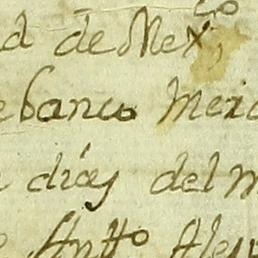 d de Mexco;
ebanco Mexi
dias del m
Antto Alex